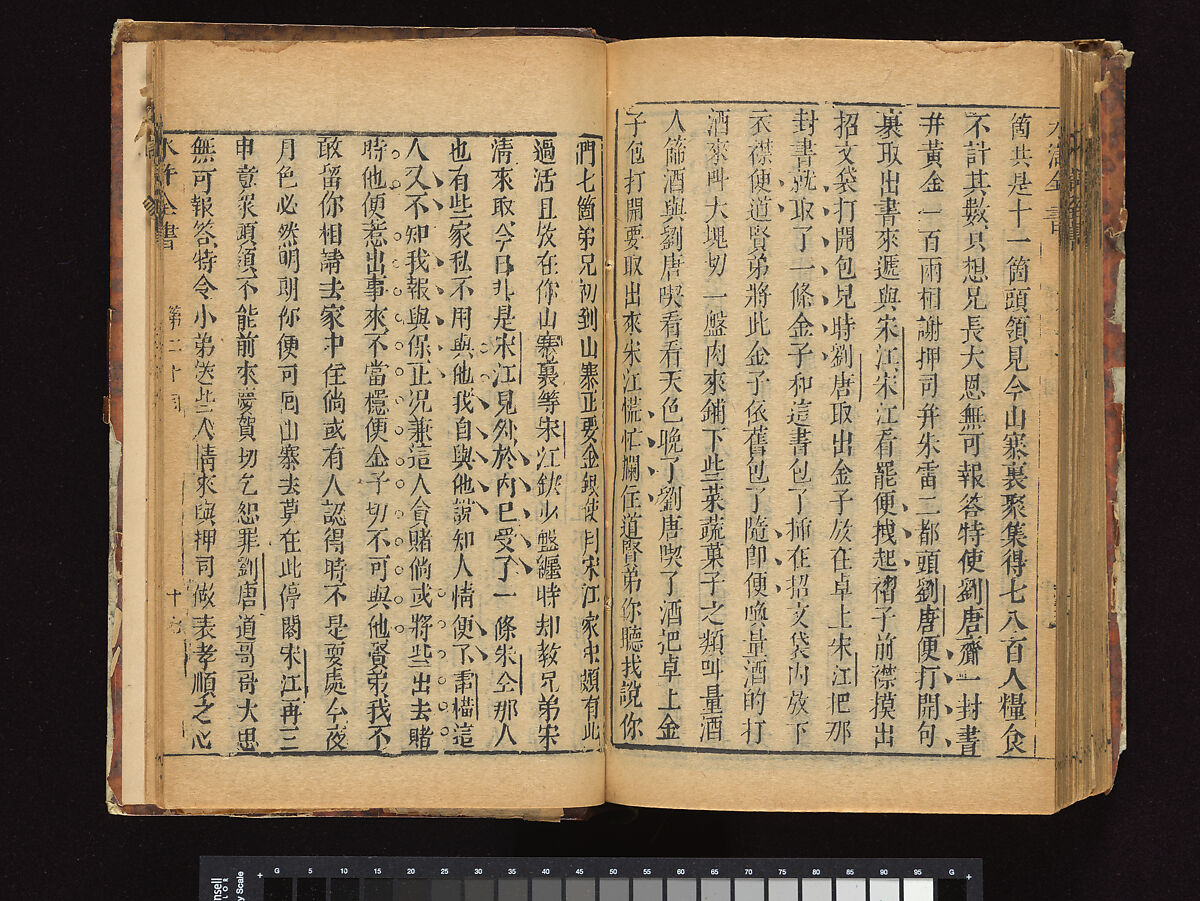 箇共是十一箇頭領見今山寨裏聚集得七八百人糧食
不計其數只想兄長大恩無可報答特使劉唐齎一封書
并黃金一百兩相謝押司并朱雷二都頭劉唐便打開包
裹取出書來遞與宋江宋江看罷便拽起褶子前襟摸出
招文袋打開包兒時劉唐取出金子放在卓上宋江把那
封書就取了一條金子和這書包了插在招文袋內放下
衣襟便道賢弟將此金子依舊包了隨即便喚量酒的打
酒來呌大塊切一盤肉來鋪下些菜蔬菓子之類叫量酒
人篩酒與劉唐喫看看天色晚了劉唐喫了酒把卓上金
子包打開要取出來宋江慌忙攔住道賢弟你聽我說你
們七箇弟兄初到山寨正要金銀使用宋江家中頗有些
過活且放在你山寨裏等宋江缺少盤纏時却教兄弟宋
清來取今日非是宋江見外於內已受了一條朱仝那人
也有些家私不用與他我自與他說知人情便了雷橫這
人又不知我報與保正况兼這人貪賭倘或將些出去賭
時他便惹出事來不當穩便金子切不可與他賢弟我不
敢留你相請去家中住倘或有人認得時不是耍處今夜
月色必然明朗你便可回山寨去莫在此停閣宋江再三
申意衆頭領不能前來慶賀切乞恕罪劉唐道哥哥大恩
無可報答特令小弟送些人情來與押司微表孝順之心
水滸全書 第二十回 十九
G 5 10 15 20 30 40 45 50 55 60 70 75 80 85 90 95 G